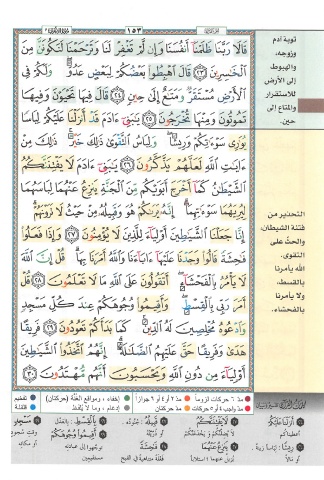 ١٥٣
قَالَا رَبَّنَا ظَلَمْنَا أَنفُسَنَا وَإِن لَّمْ تَغْفِرْ لَنَا وَتَرْحَمْنَا لَنَكُونَنَّ مِنَ
الْخَاسِرِينَ ٢٣ قَالَ اهْبِطُوا بَعْضُكُمْ لِبَعْضٍ عَدُوٌّ وَلَكُمْ فِي
الْأَرْضِ مُسْتَقَرٌّ وَمَتَاعٌ إِلَىٰ حِينٍ ٢٤ قَالَ فِيهَا تَحْيَوْنَ وَفِيهَا
تَمُوتُونَ وَمِنْهَا تُخْرَجُونَ ٢٥ يَا بَنِي آدَمَ قَدْ أَنزَلْنَا عَلَيْكُمْ لِبَاسًا
يُوَارِي سَوْآتِكُمْ وَرِيشًا وَلِبَاسُ التَّقْوَىٰ ذَٰلِكَ خَيْرٌ ذَٰلِكَ مِنْ
آيَاتِ اللَّهِ لَعَلَّهُمْ يَذَّكَّرُونَ ٢٦ يَا بَنِي آدَمَ لَا يَفْتِنَنَّكُمُ
الشَّيْطَانُ كَمَا أَخْرَجَ أَبَوَيْكُم مِّنَ الْجَنَّةِ يَنزِعُ عَنْهُمَا لِبَاسَهُمَا
لِيُرِيَهُمَا سَوْآتِهِمَا إِنَّهُ يَرَاكُمْ هُوَ وَقَبِيلُهُ مِنْ حَيْثُ لَا تَرَوْنَهُمْ
إِنَّا جَعَلْنَا الشَّيَاطِينَ أَوْلِيَاءَ لِلَّذِينَ لَا يُؤْمِنُونَ ٢٧ وَإِذَا فَعَلُوا
فَاحِشَةً قَالُوا وَجَدْنَا عَلَيْهَا آبَاءَنَا وَاللَّهُ أَمَرَنَا بِهَا قُلْ إِنَّ اللَّهَ
لَا يَأْمُرُ بِالْفَحْشَاءِ أَتَقُولُونَ عَلَى اللَّهِ مَا لَا تَعْلَمُونَ ٢٨ قُلْ
أَمَرَ رَبِّي بِالْقِسْطِ وَأَقِيمُوا وُجُوهَكُمْ عِندَ كُلِّ مَسْجِدٍ
وَادْعُوهُ مُخْلِصِينَ لَهُ الدِّينَ كَمَا بَدَأَكُمْ تَعُودُونَ ٢٩ فَرِيقًا
هَدَىٰ وَفَرِيقًا حَقَّ عَلَيْهِمُ الضَّلَالَةُ إِنَّهُمُ اتَّخَذُوا الشَّيَاطِينَ
أَوْلِيَاءَ مِن دُونِ اللَّهِ وَيَحْسَبُونَ أَنَّهُم مُّهْتَدُونَ ٣٠
توبة آدم
وزوجه،
والهبوط
إلى الأرض
للاستقرار
والمتاع إلى
حين.
التحذير من
فتنة الشيطان،
والحث على
التقوى.
الله يأمرنا
بالقسط،
ولا يأمرنا
بالفحشاء.